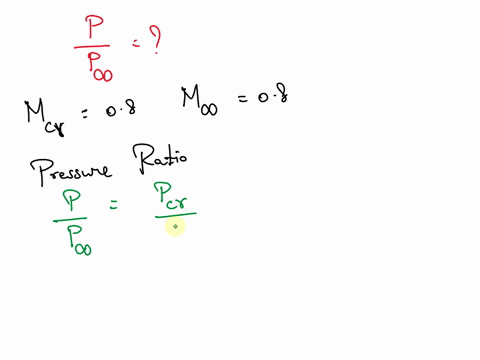 P/P∞ = ?
Mcr = 0.8 M∞ = 0.8
Pressure Ratio
P/P∞ = Pcr/